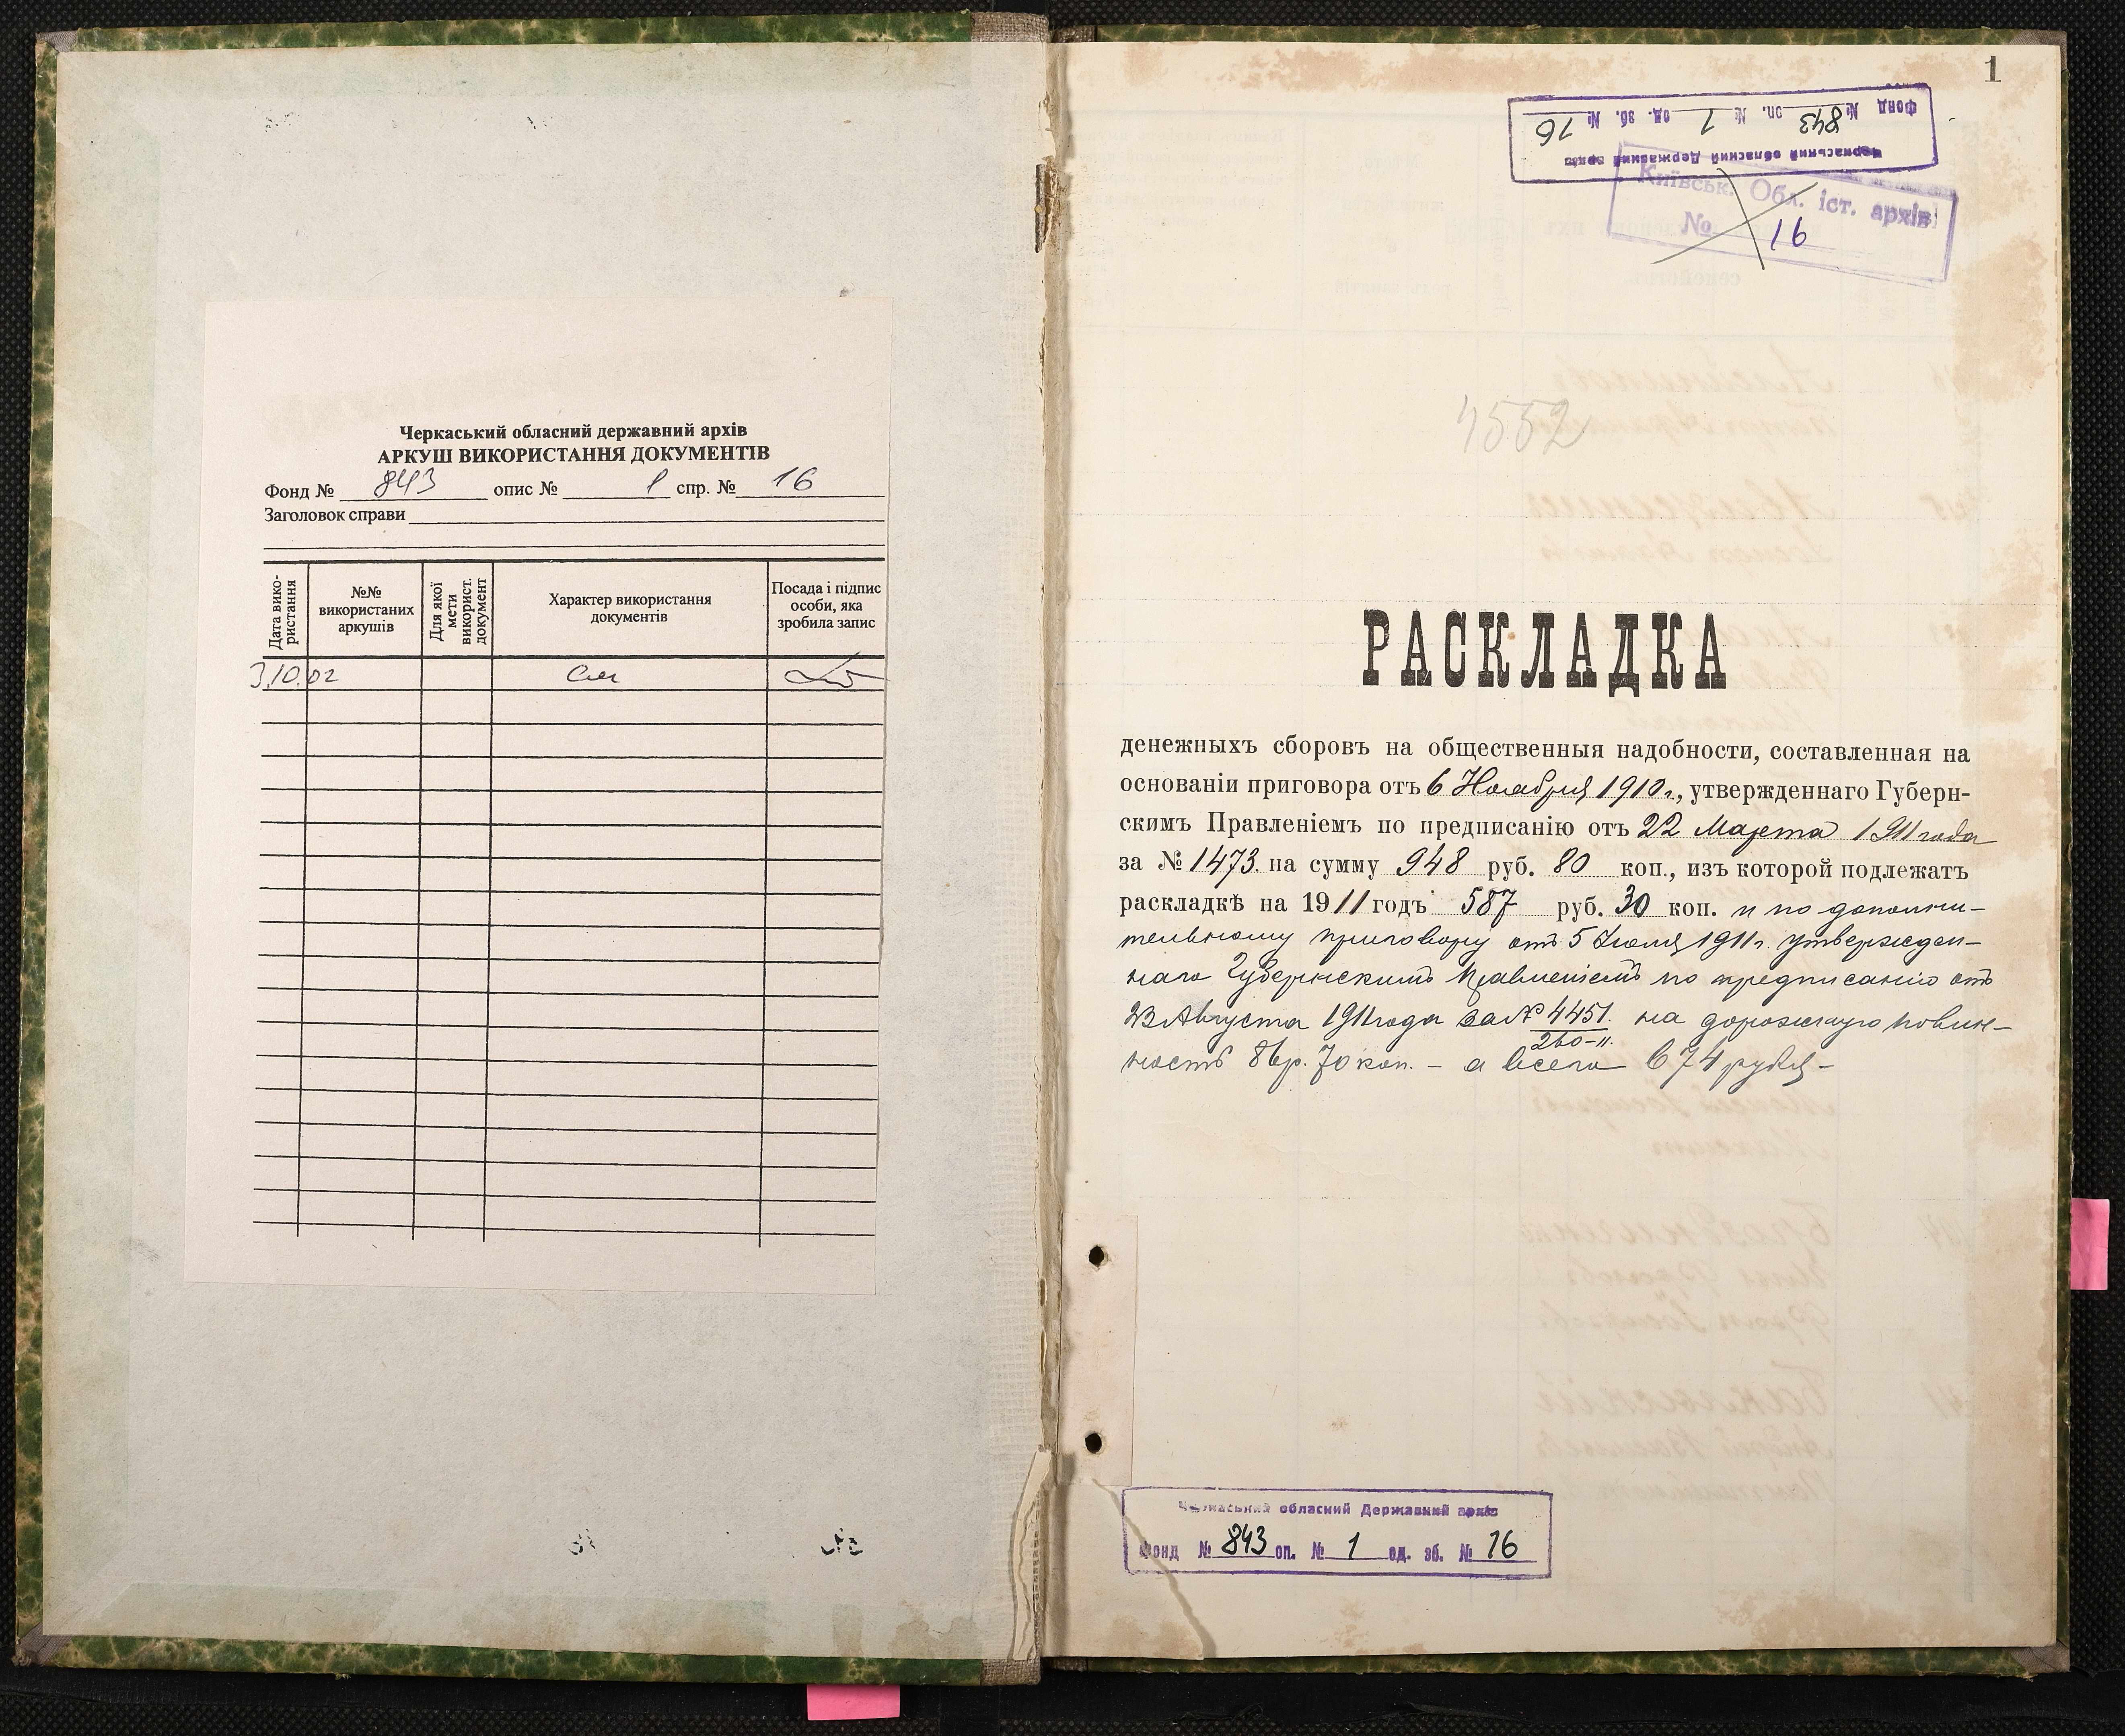 Черкаський обласний державний архів
АРКУШ ВИКОРИСТАННЯ ДОКУМЕНТІВ
Фонд № 843 опис № 1 спр. № 16
Заголовок справи
Дата вико-
ристання
№№
використаних
аркушів
Для якої
мети
використ.
документ
Характер використання
документів
Посада і підпис
особи, яка
зробила запис
3.10.02
1
Черкаський обласний Державний архів
Фонд № 843 оп. № 1 од. зб. № 16
Київськ. Обл. іст. архів
№ 16
4552
РАСКЛАДКА
денежныхъ сборовъ на общественныя надобности, составленная на
основаніи приговора отъ 6 Ноября 1910 г., утвержденнаго Губерн-
скимъ Правленіемъ по предписанію отъ 22 Марта 1911 года
за № 1473. на сумму 948 руб. 80 коп., изъ которой подлежатъ
раскладкѣ на 1911 годъ 587 руб. 30 коп. и по дополни-
тельному приговору отъ 5 Іюля 1911 г. утвержден-
наго Губернскимъ Правленіемъ по предписанію отъ
23 Августа 1911 года за № 4451. на дорожную повин-
260-II.
ность 86 р. 70 коп. - а всего 674 рубл -
Черкаський обласний Державний архів
Фонд № 843 оп. № 1 од. зб. № 16